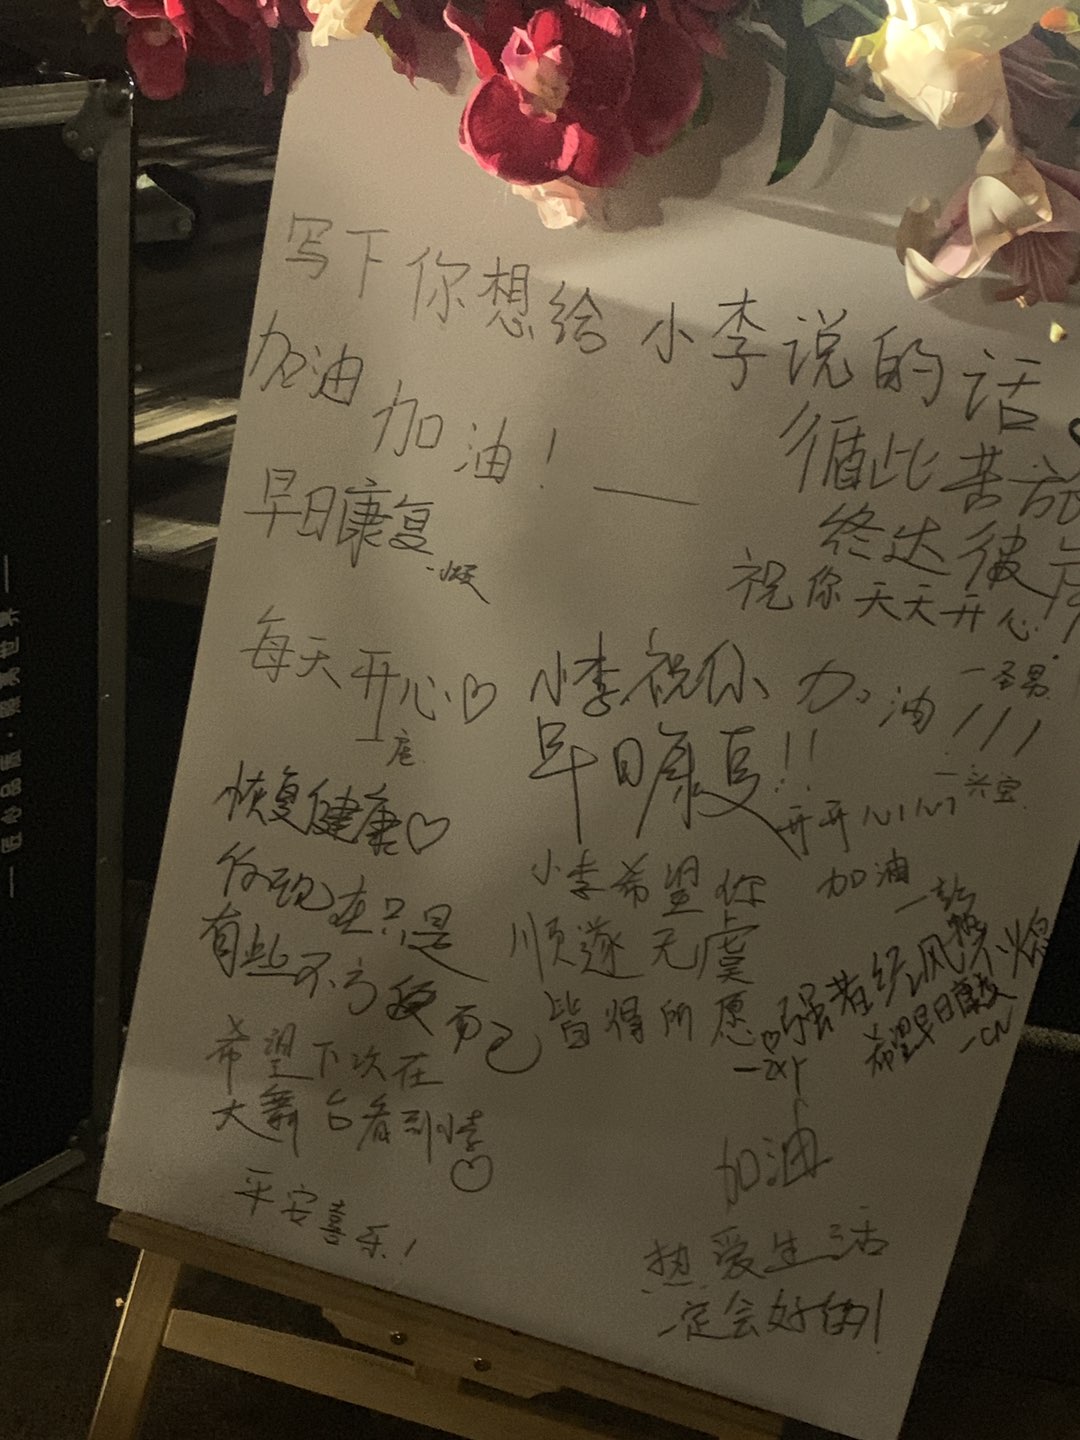 写下你想给小李说的话
加油
加油！
循此苦旅
终达彼岸
早日康复
祝你天天开心！
每天开心♡
小李祝你
早日康复!!
加油!!!
恢复健康♡
开开心心
你现在只是
有些不方便而已
小李希望你
顺遂无虞
皆得所愿
—ZXY
加油
强者经风
希望早日康复
—CN
希望下次在
大舞台看到你
♡
平安喜乐！
加油
热爱生活
一定会好的!